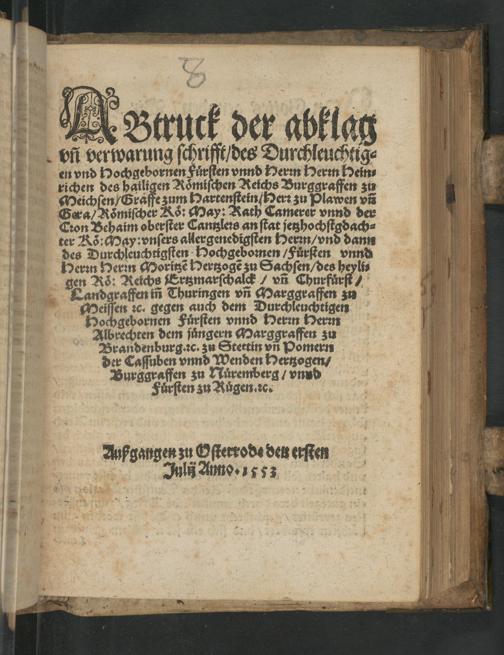 8
ABtruck der abklag
vñ verwarung schrifft/des Durchleuchtig-
en vnd Hochgebornen Fürsten vnnd Herrn Herrn Hein-
richen des hailigen Römischen Reichs Burggraffen zu
Meichsen/Graffe zum Hartenstein/Herr zu Plawen vñ
Gera/Römischer Kö: May: Rath Camerer vnnd der
Cron Behaim oberster Cantzlers an stat jetzhochstgdach-
ter Kö: May: vnsers allergenedigsten Herrn/vnd dann
des Durchleuchtigsten Hochgebornen/Fürsten vnnd
Herrn Herrn Moritzē Hertzogē zu Sachsen/des heyli-
gen Rö: Reichs Ertzmarschalck/ vñ Churfürst/
Landgraffen iñ Thuringen vñ Marggraffen zu
Meissen ꝛc. gegen auch dem Durchleuchtigen
Hochgebornen Fürsten vnnd Herrn Herrn
Albrechten dem jüngern Marggraffen zu
Brandenburg.ꝛc. zu Stettin vñ Pomern
der Cassuben vnnd Wenden Hertzogen/
Burggraffen zu Nüremberg/ vnnd
Fürsten zu Rügen.ꝛc.
Außgangen zu Osterrode den ersten
Julij Anno. 1553